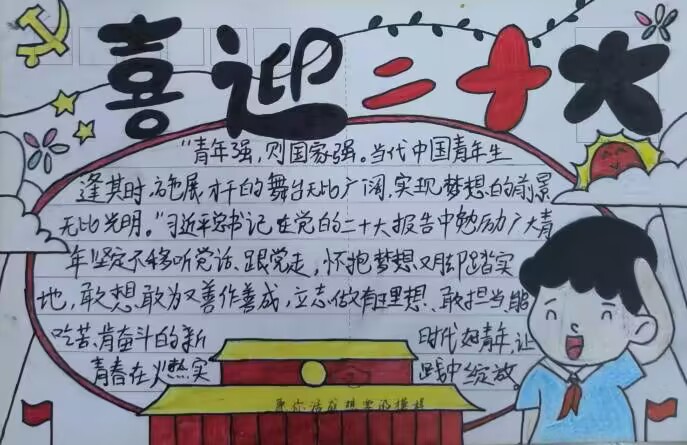 喜迎二十大
“青年强，则国家强。当代中国青年生
逢其时，施展才干的舞台无比广阔，实现梦想的前景
无比光明。”习近平总书记在党的二十大报告中勉励广大青
年“坚定不移听党话、跟党走，怀抱梦想又脚踏实
地，敢想敢为又善作善成，立志做有理想、敢担当、能
吃苦、肯奋斗的新时代好青年，让
青春在火热实践中绽放。
愿你活成想要的模样